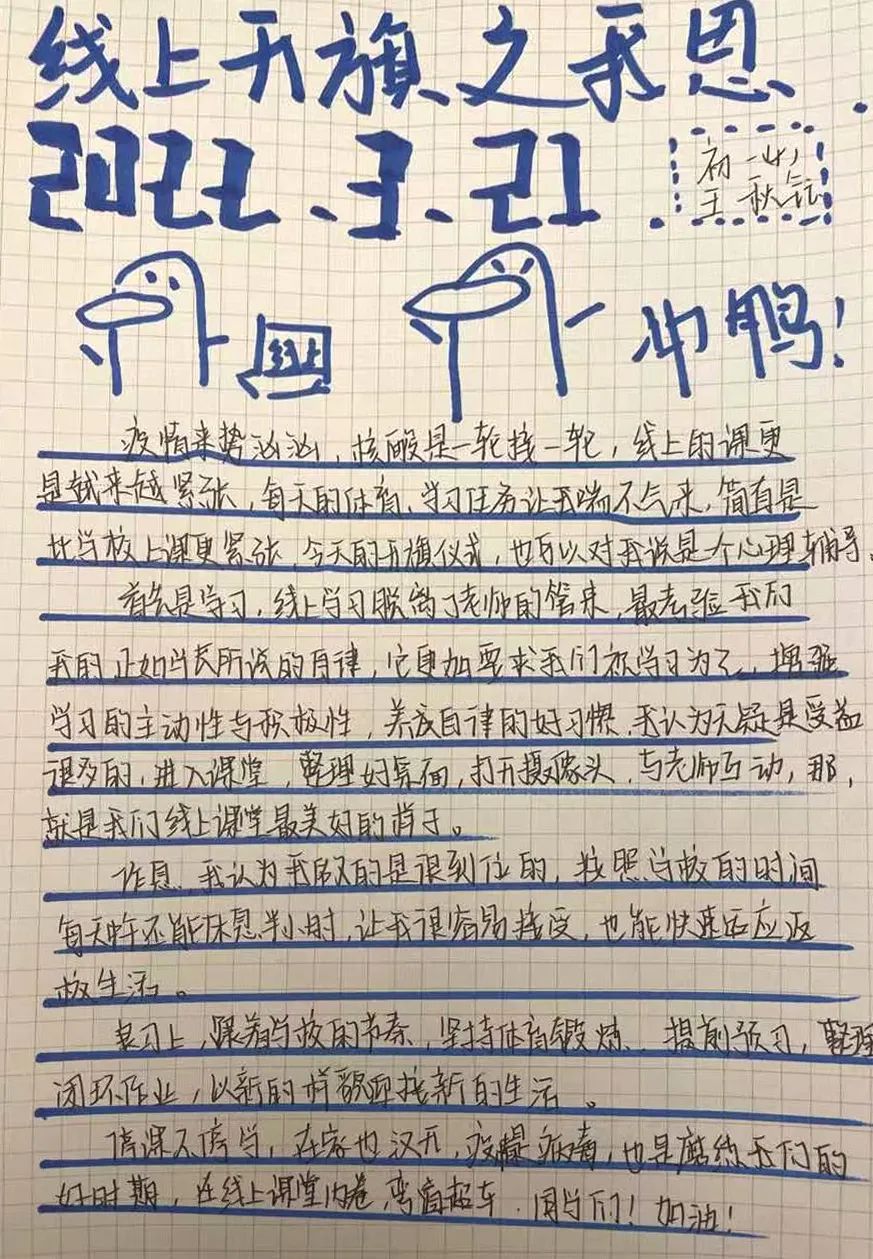 线上升旗之我思
2022.3.21
初一(4)
王秋
线上
冲鸭!
疫情来势汹汹,核酸是一轮接一轮,线上的课更
是越来越紧张,每天的体育、学习任务让我喘不气来,简直是
比学校上课更紧张,今天的升旗仪式,也可以对我说是一个心理辅导。
首先是学习,线上学习脱离了老师的管束,最考验我们
我的正如学长所说的自律,它更加要求我们视学习为了,增强
学习的主动性与积极性,养成自律的好习惯,我认为无疑是受益
很多的,进入课堂,整理好桌面,打开摄像头,与老师互动,那,
就是我们线上课堂最美好的样子。
作息,我认为我做的是很到位的,按照学校的时间
每天中午还能休息半小时,让我很容易接受,也能快速适应返
校生活。
复习上,跟着学校的节奏,坚持体育锻炼,提前预习,整理
闭环作业,以新的样貌迎接新的生活。
停课不停学,在家也汉元,疫情病毒,也是磨练我们的
好时期,在线上课堂内卷,弯道超车,同学们!加油!